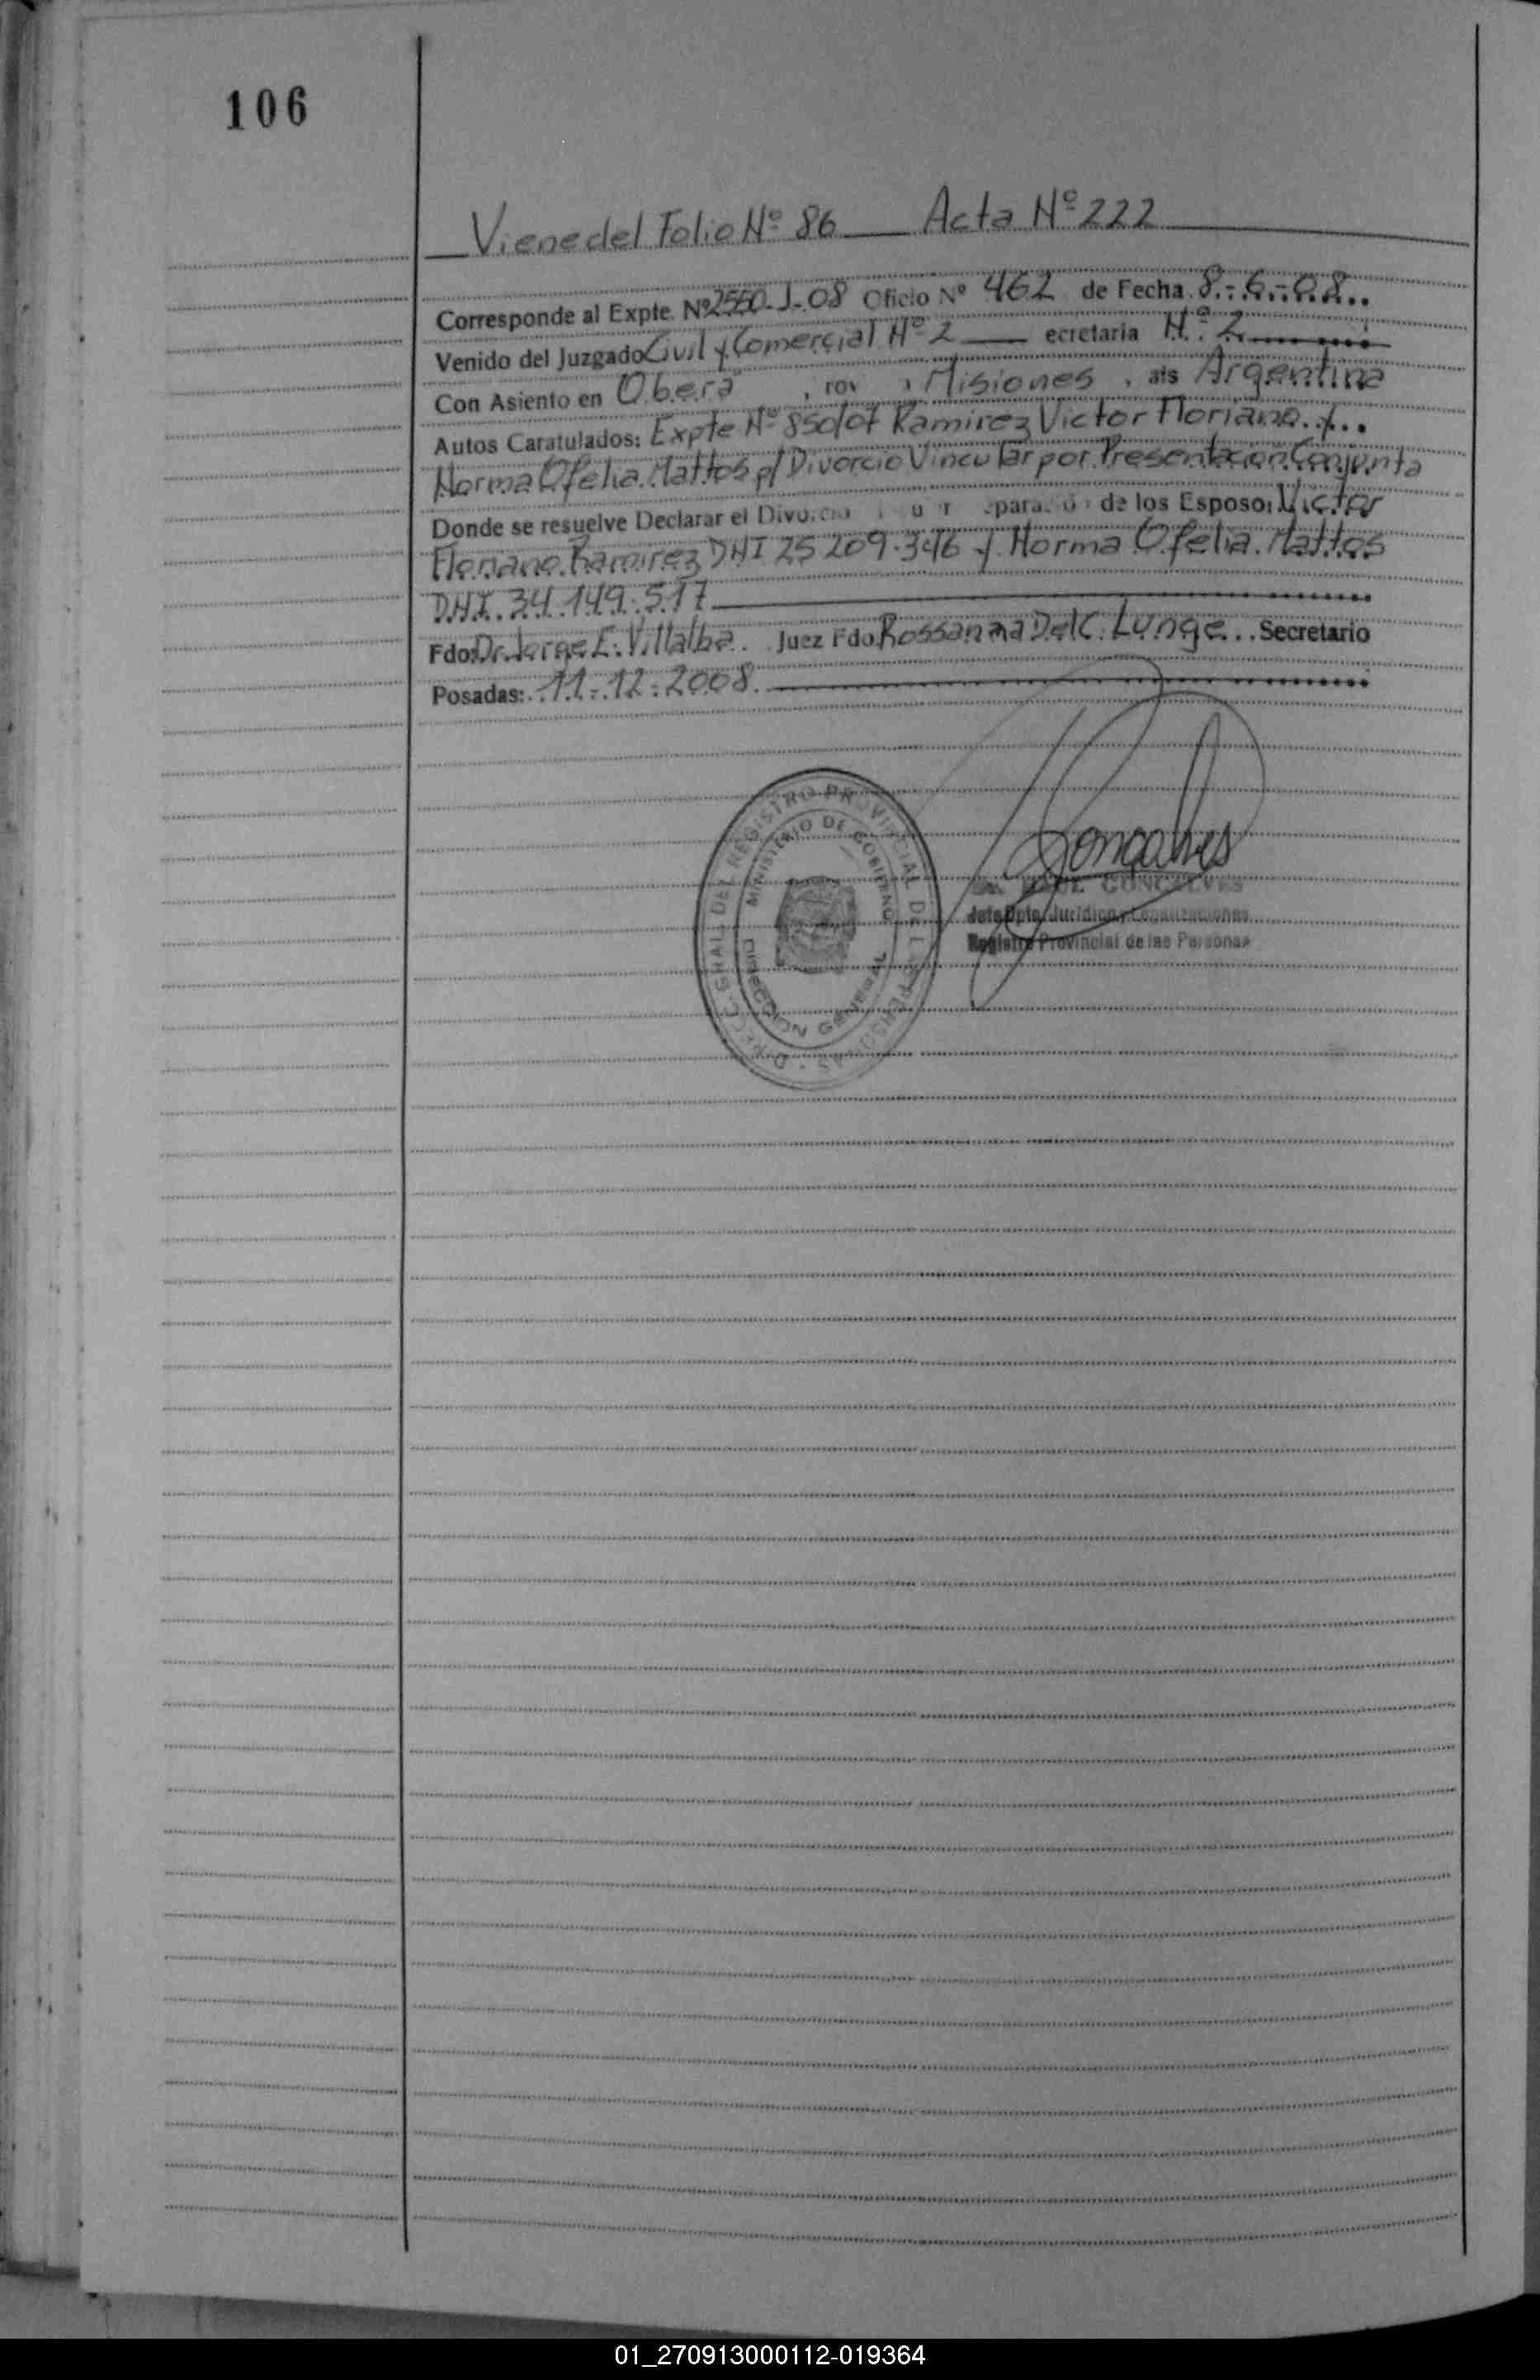 106
Viene del Folio Nº 86 Acta Nº 222
Corresponde al Expte. Nº 2550-J-08 Oficio Nº 462 de Fecha 8.-6.-08
Venido del Juzgado Civil y Comercial Nº 2 ecretaria Nº 2
Con Asiento en Oberá, rov Misiones, ais Argentina
Autos Caratulados: Expte Nº 850/07 Ramirez Victor Floriano y
Norma Ofelia Mattos p/ Divorcio Vincular por Presentación Conjunta
Donde se resuelve Declarar el Divorcio de los Esposo: Victor
Floriano Ramirez DNI 25 209.346 y Norma Ofelia Mattos
DNI. 34.149.517
Fdo: Dr. Jorge E. Villalba. Juez Fdo. Rossanna Del C. Lunge.. Secretario
Posadas: 11-12-2008.
Goncalves
Dr. RAUL GONCALVES
Jefe Dpto. Jurídico y Legalizaciones
Registro Provincial de las Personas
DIRECC. GRAL. DEL REGISTRO PROVINCIAL DE LAS PERSONAS
MINISTERIO DE GOBIERNO
DIRECCION GENERAL
01_270913000112-019364